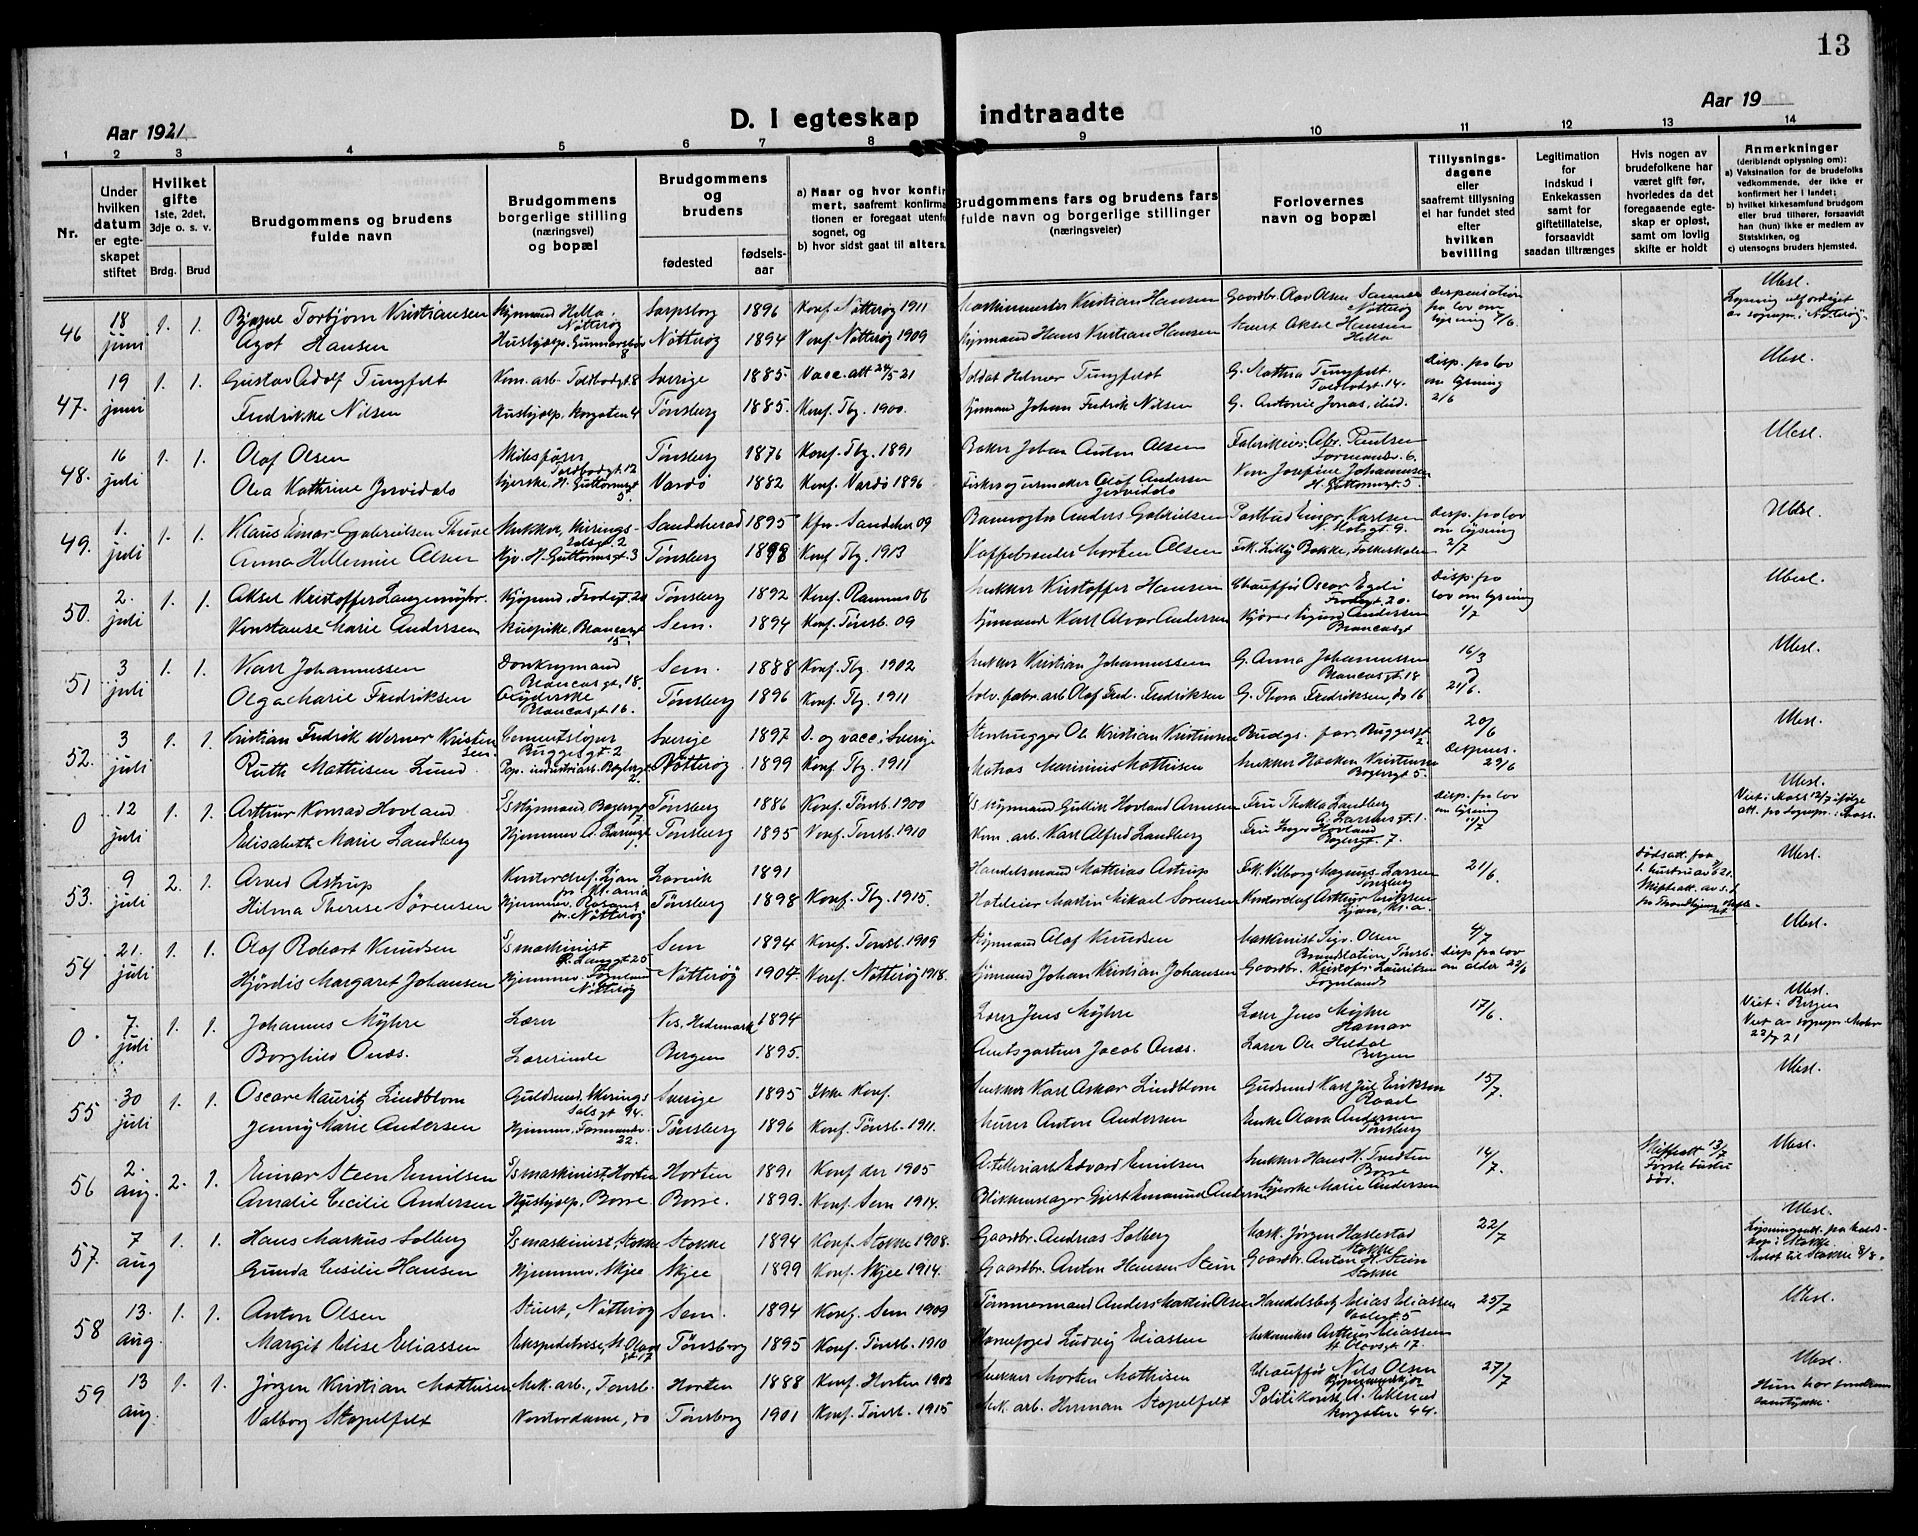 13
Aar 1921
D. I egteskap indtraadte
Aar 19
1 2 3 4 5 6 7 8 9 10 11 12 13 14
Nr.
Under hvilken datum er egteskapet stiftet
Hvilket gifte 1ste, 2det, 3dje o. s. v.
Brdg. Brud
Brudgommens og brudens fulde navn
Brudgommens borgerlige stilling (næringsvei) og bopæl
Brudgommens og brudens
fødested
fødselsaar
a) Naar og hvor konfirmert, saafremt konfirmationen er foregaat utenfor sognet, og
b) hvor sidst gaat til alters
Brudgommens fars og brudens fars fulde navn og borgerlige stillinger (næringsveier)
Forlovernes navn og bopæl
Tillysningsdagene eller saafremt tillysning ei har fundet sted efter hvilken bevilling
Legitimation for Indskud i Enkekassen samt for giftetillatelse, forsaavidt saadan tiltrænges
Hvis nogen av brudefolkene har været gift før, hvorledes da det foregaaende egteskap er opløst, samt om lovlig skifte er holdt
Anmerkninger (deriblandt oplysning om):
a) Vaksination for de brudefolks vedkommende, der ikke er konfirmert her i landet;
b) hvilket kirkesamfund brudgom eller brud tilhører, forsaavidt han (hun) ikke er medlem av Statskirken, og
c) utensogns bruders hjemsted.
46 18 juni 1. 1. Bjarne Torbjørn Kristiansen Sjømand Hella Nøtterøy Sarpsborg 1896 Konf. Nøtterøy 1911 Maskinmester Kristian Hansen Gaardbr. Olav Olsen Nøtterøy Dispensation fra lov om lysning 7/6 Ubesl.
Agot Hansen Hushjælp, Gunnarsbø 8 Nøtterøy 1894 Konf. Nøtterøy 1909 Sjømand Hans Kristian Hansen Stuert Aksel Hansen Hella
47. 19 juni 1. 1. Gustav Adolf Tungfelt Kom. arb. Toldbodgt. 8 Sverige 1885. Vacc. att 24/5 21 Soldat Helmer Tungfeldt G. Mathea Tungfelt Toldbodgt. 14. Disp. fra lov om lysning 2/6 Ubesl.
Fredrikke Nilsen Hushjælp, Storgaten 4 Tønsberg 1885. Konf. Tbg. 1900. Sjømand Johan Fredrik Nilsen G. Antonie Jonas, ibid.
48. 16 juli 1. 1. Olaf Olsen Toldbodgt. 12 Tønsberg 1876 Konf. Tbg. 1891 Baker Johan Anton Olsen Fabrikeier Abr. Paulsen Farmandv. 6. Ubesl.
Olea Kathrine Jervidals H. Guttormsgt. 5 Vardø 1882 Konf. Vardø 1896 Olaf Andersen Jervidals Josefine Johannesen H. Guttormsgt. 5
49. 1. juli 1. 1. Klaus Einar Gabrielsen Thuve Snekker, Skiringssalsgt. 2 Sandeherad 1895 Kfm. Sandeher 09 Banevogter Anders Gabrielsen Postbud Einar Karlsen Disp. fra lov om lysning 2/7 Ubesl.
Anna Hellemine Olsen H. Guttormsgt. 3 Tønsberg 1898 Konf Tbg. 1913 Kaffebrender Morten Olsen Frk. Lilly Bakke, Folkeskolen
50. 2. juli 1. 1. Aksel Kristoffer Langemyhr. Sjømand, Frodegt. 20 Tønsberg 1892 Konf. Ramnes 06 Snekker Kristoffer Hansen Chauffør Oscar Egeli Frodegt. 20. Disp. fra lov om lysning 1/7 Ubesl.
Konstanse Marie Andersen Huspike, Brancasgt 15. Sem. 1894 Konf. Tønsb. 09 Sjømand Karl Alvar Andersen Kjører Sigurd Andersen Brancasgt
51 3 juli 1. 1. Karl Johannessen Donkeymand Brancasgt. 18. Sem. 1888 Konf. Tbg. 1902 Snekker Kristian Johannessen G. Anna Johannessen Brancasgt. 18 16/3 Ubesl.
Olga Marie Fredriksen Syerske Brancasgt. 16. Tønsberg 1896 Konf. Tbg. 1911 Sølv. fabr. arb Olaf Fred. Fredriksen G. Thora Fredriksen, do 16 21/6.
52. 3 juli 1. 1. Kristian Fredrik Werner Kristensen Cementstøper Bugges gt. 2 Sverige 1897 D. og vacc. i Sverige Stenhugger Ole Kristian Kristensen Budgs. far, Bugges gt 2 20/6 Ubesl.
Ruth Mathisen Lund. Pap. industriarb. Bøglergt 2. Nøtterøy 1899 Konf. Tbg. 1911 Matros Marinius Mathisen Snekker Haakon Kristensen Baglergt 5. Dispens. 29/6
0 12 juli 1. 1. Arthur Konrad Hovland Sjømand Baglergt 7 Tønsberg 1886 Konf. Tønsb. 1900 Sjømand Gullik Hovland Arnesen Fru Thekla Landberg Disp. fra lov om lysning 11/7 Ubesl.
Elisabeth Marie Landberg Hjemme Tønsberg 1895 Konf. Tønsb. 1910 Kom. arb. Karl Alfred Landberg Fru Inger Hovland Baglergt. 7.
53. 9 juli 2. 1. Arved Astrup Kontorchef. Ljan pr. Kr.ania Larvik 1891 Handelsmand Mathias Astrup Frk. Valborg Magnus-Larsen Tønsberg 21/6. Ubesl.
Hilma Therese Sørensen Hjemme, Rosanes pr. Nøtterøy Tønsberg 1898 Konf. Tbg. 1915. Hoteleier Martin Mikael Sørensen Kontorchef Arthur Eriksen Ljan, Kr. a.
54 21. juli 1. 1. Olaf Robert Knudsen Ssmaskinist Ø. Langgt 25 Sem 1894 Konf. Tønsb. 1909 Sjømand Olaf Knudsen Maskinist Sigv. Olsen Brandstation Tønsb. 4/7 Ubesl.
Hjørdis Margaret Johansen Hjemme. Fogneland Nøtterøy Nøtterøy 1904 Konf. Nøtterøy 1918. Sjømand Johan Kristian Johansen Gaardbr. Kristofr. Lauritsen Fognelands Disp fra lov om alder 22/6
0. 7. juli 1. 1. Johannes Myhre Lærer Nes. Hedemark 1894 Lærer Jens Myhre Lærer Jens Myhre Hamar 17/6. Ubesl. Viet i Bergen
Borghild Onæs. Lærerinde Bergen 1895. Amtsgartner Jacob Onæs. Lærer Ole Heldal Bergen 22/7 21
55 30 juli 1. 1. Oscar Mauritz Lindblom Guldsmed, Skiringssalsgt 94. Sverige 1895 Ikke Konf. Snekker Karl Oskar Lindblom Guldsmed Karl Jul. Eriksen 15/7. Ubesl.
Jenny Marie Andersen Hjemme, Farmandsv. 22. Tønsberg 1896 Konf. Tønsb. 1911. Murer Anton Andersen Enke Olava Andersen Tønsberg
56 2. aug. 2. 1. Einar Steen Emilsen Ssmaskinist, Horten Horten 1891 Konf der 1905 Artilleriarb. Edvard Emilsen Snekker Hans H. Tredten Borre 14/7. Skifteatt 13/7 Første hustru død. Ubesl.
Amalie Cecilie Andersen Hushjælp, Borre. Borre. 1899. Konf. Sem 1914. Blikkenslager Gjert Emanuel Andersen Syerske Marie Andersen
57. 7 aug 1. 1. Hans Markus Solberg Ssmaskinist, Stokke Stokke 1894 Konf. Stokke 1908. Gaardbr. Andreas Solberg Mask. Jørgen Haslestad Stokke 22/7 Ubesl.
Gunda Cesilie Hansen Hjemme, Skjee Skjee 1899 Konf. Skjee 1914. Gaardbr. Anton Hansen Stein Gaardbr. Anton H. Stein Stokke Meldt til Stokke 8/8.
58 13. aug 1. 1. Anton Olsen Stuert, Nøtterøy Sem. 1894 Konf. Sem 1909 Tømmermand Anders Martin Olsen Handelsbetj Elias Eliassen 25/7 Ubesl.
Margit Elise Eliassen Ekspeditrise, St. Olavs gt 17 Tønsberg 1895 Konf. Tønsb. 1910 Havnefoged Ludvig Eliassen Mekaniker Arthur Eliassen St Olavsgt 17.
59 13 aug. 1. 1. Jørgen Kristian Mathisen Mek. arb., Tønsb. Horten 1888 Konf. Horten 1902 Snekker Morten Mathisen Chauffør Nils Olsen 27/7 Ubesl.
Valborg Stapelfelt Kontordame, do Tønsberg 1901 Konf. Tønsb. 1915 Mek. arb. Herman Stapelfelt Politikonst. A. Eklund Storgaten 44. Hun har forældrenes samtykke.